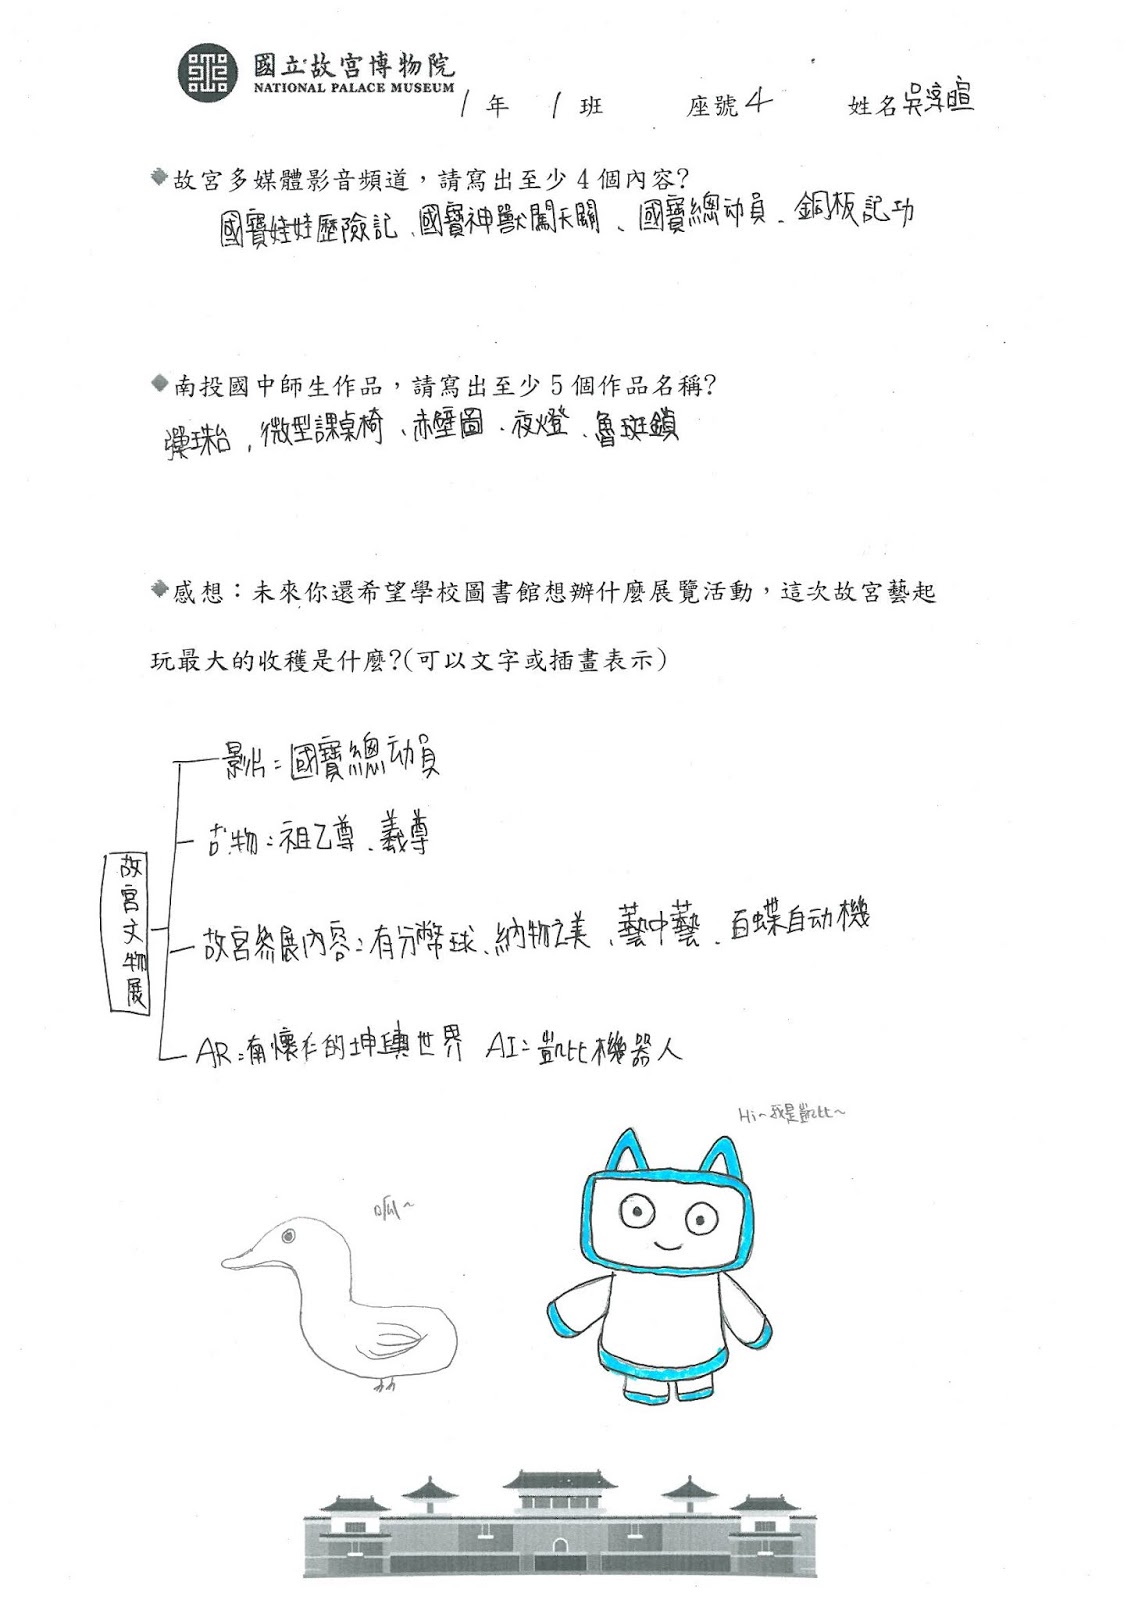 國立故宮博物院
NATIONAL PALACE MUSEUM
1 年 1 班 座號 4 姓名 吳淳暄
故宮多媒體影音頻道，請寫出至少 4 個內容?
國寶娃娃歷險記、國寶神獸闖天關、國寶總动員、銅板記功
南投國中師生作品，請寫出至少 5 個作品名稱?
彈珠台、微型課桌椅、赤壁圖、夜燈、魯班鎖
感想：未來你還希望學校圖書館想辦什麼展覽活動，這次故宮藝起
玩最大的收穫是什麼?(可以文字或插畫表示)
故宮文物展
影片：國寶總动員
古物：祖乙尊、羲尊
故宮參展內容：有分幣球、納物之美、藝中藝、百蝶自动機
AR：有懷仁的坤輿世界 AI：凱比機器人
Hi~我是凱比~
呱~